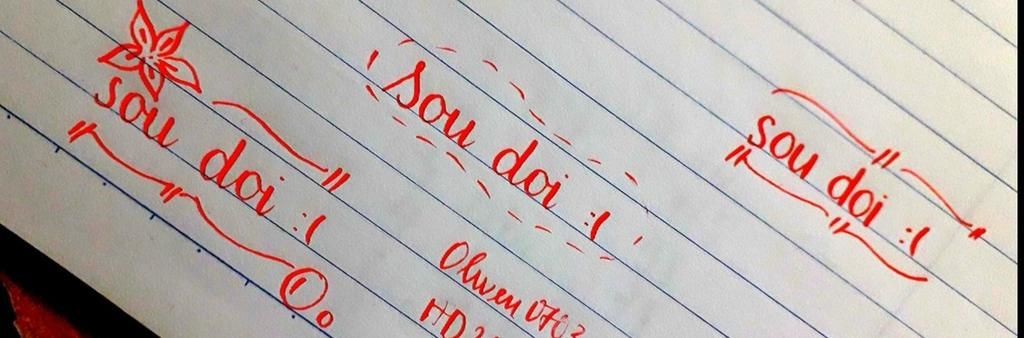 sou doi :(
Sou doi :(
sou doi :(
Olwen0702